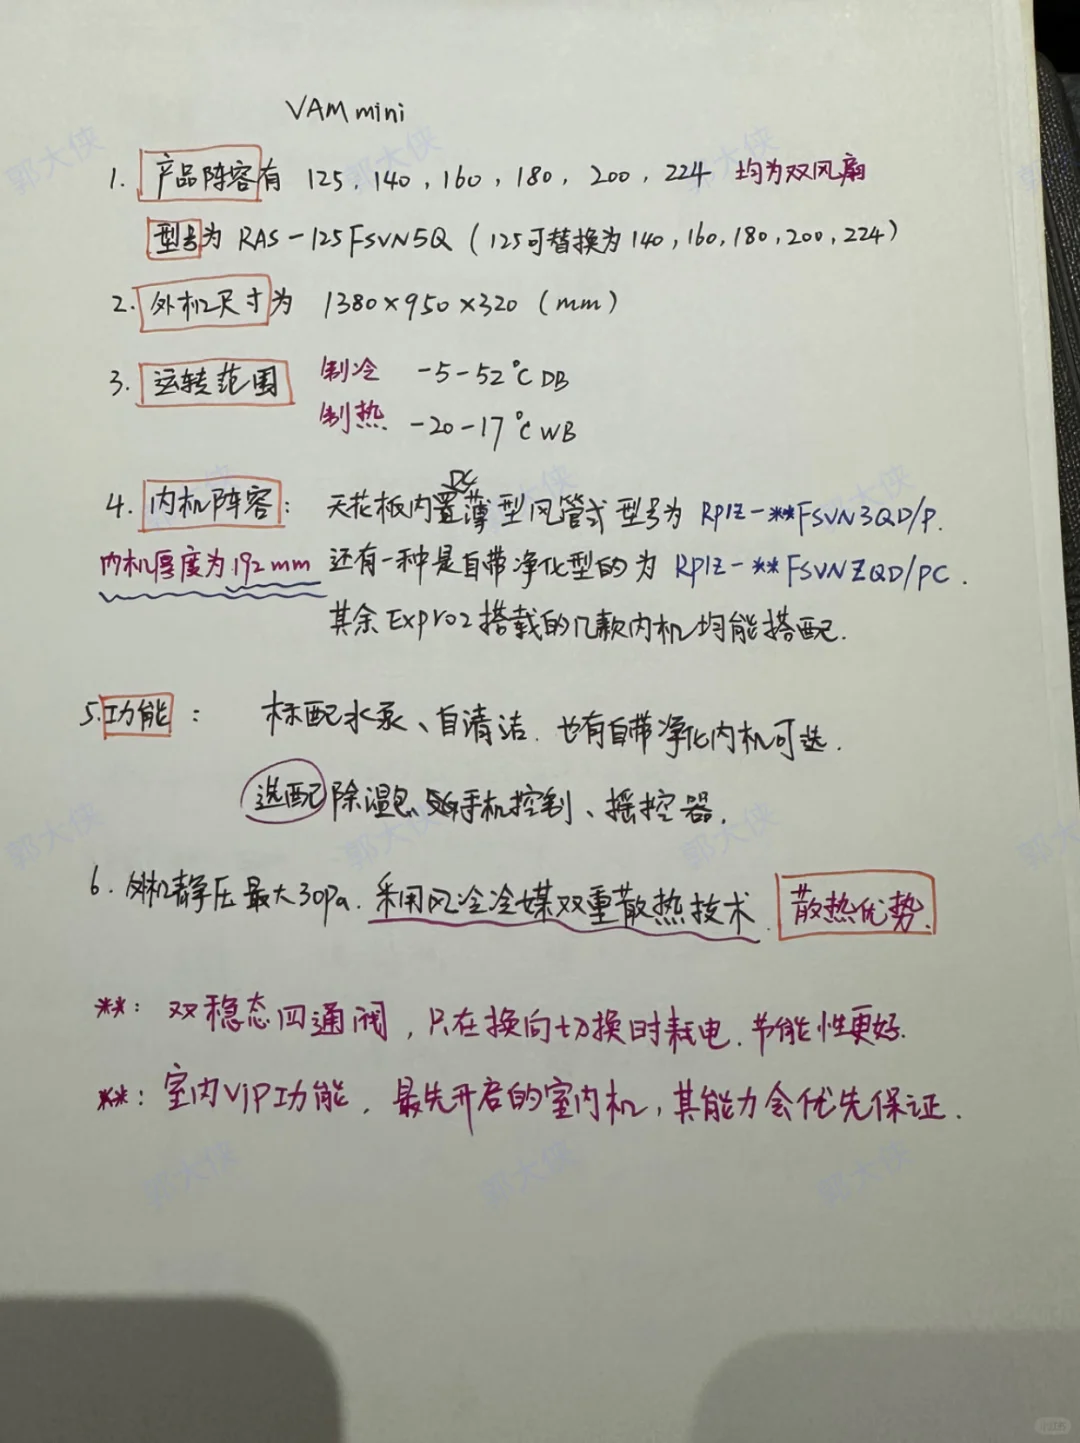 VAM mini
1. 产品阵容有 125、140，160，180，200，224 均为双风扇
型号为 RAS-125FSVN5Q（125可替换为140，160，180，200，224）
2. 外机尺寸为 1380×950×320（mm）
3. 运转范围 制冷 -5-52℃ DB
制热 -20-17℃ WB
4. 内机阵容： 天花板内置DC薄型风管式型号为 RPIZ-**FSVN3QD/P.
内机厚度为192mm 还有一种是自带净化型的为 RPIZ-**FSVNZQD/PC.
其余Expro2搭载的几款内机均能搭配.
5.功能： 标配水泵、自清洁.也有自带净化内机可选.
选配 除湿包、手机控制、摇控器.
6. 外机静压最大30Pa.采用风冷冷媒双重散热技术. 散热优势.
**：双稳态四通阀，只在换向切换时耗电.节能性更好.
**：室内VIP功能，最先开启的室内机，其能力会优先保证.
郭大侠
小红书